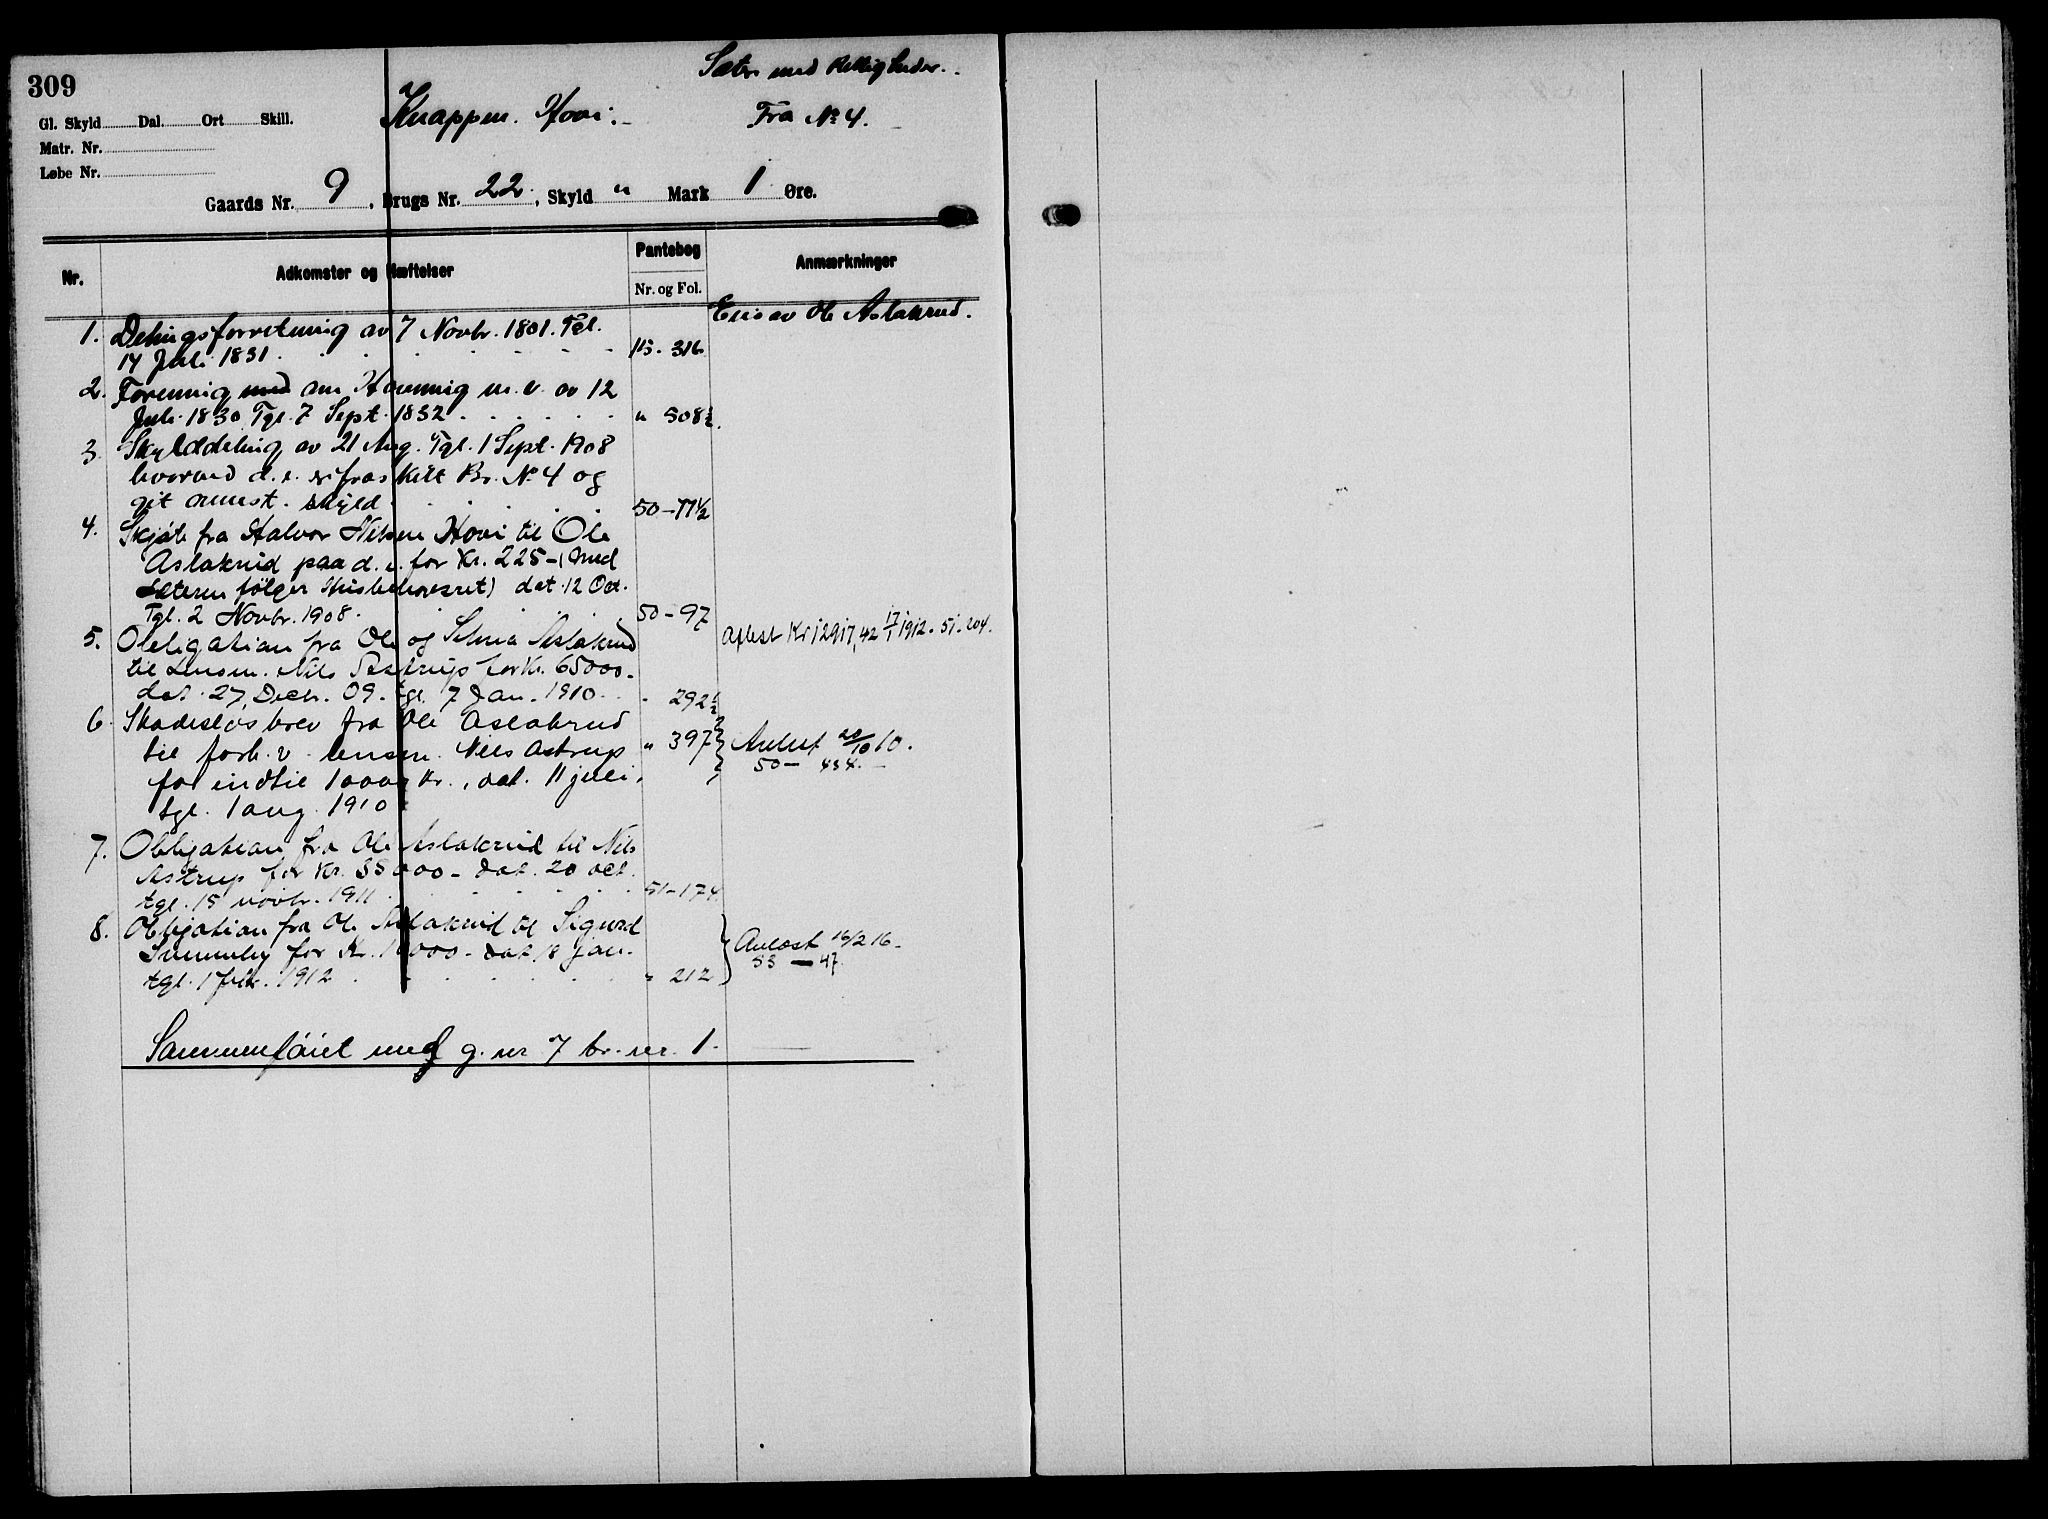 309
Sæter med Rettigheder.
Gl. Skyld Dal. Ort Skill.
Knappen. Hovi.
Fra No 4.
Matr. Nr.
Løbe Nr.
Gaards Nr. 9, Brugs Nr. 22, Skyld " Mark 1 Øre.
Nr.
Adkomster og Hæftelser
Pantebog
Nr. og Fol.
Anmærkninger
Eies av Ole Aslakrud.
1. Delingsforretning av 7 Novbr. 1801. Tgl.
14 Juli 1831. 316
2. Forening med om Havning m. v. av 12
Juli 1830 Tgl. 7 Sept. 1832 " 508½
3. Skylddeling av 21 Aug. Tgl. 1 Sept. 1908
hvorved d. e. er fraskilt Br. No 4 og
git ommst. skyld 50-77½
4. Skjøte fra Halvor Nilsen Hovi til Ole
Aslakrud paa d. e. for Kr. 225- (med
Sæteren følger Husbehovsret) dat. 12 Oct.
Tgl. 2 Novbr. 1908. 50-97
5. Obligation fra Ole og Selma Aslakrud
Aflest Kr 12917,42 17/1 1912. 51-204.
til Lensm. Nils Astrup for Kr. 65000-
dat. 27 Decbr. 09. tgl. 7 Jan. 1910. " 292½
6. Skadesløsbrev fra Ole Aslakrud
til forh. v. lensm. Nils Astrup " 397
Avlest 20/10 10.
50- 434.
for indtil 10000 kr., dat. 11 juli,
tgl. 1 aug. 1910
7. Obligation fra Ole Aslakrud til Nils
Astrup for Kr. 35000- dat. 20 oct.
tgl. 15 novbr. 1911 51-174
8. Obligation fra Ole Aslakrud til Sigurd
for Kr. 10000- dat. 18 jan.
Avlæst 16/2 16-
53 - 47.
tgl. 1 febr. 1912 " 212
Sammenføiet med g. nr 7 br. nr. 1.